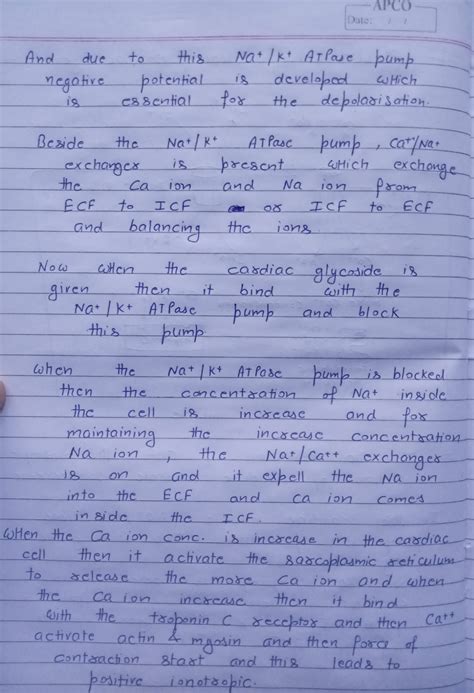 APCO
Date: / /
And due to this Na+/K+ ATPase pump
negative potential is developed which
is essential for the depolarisation.
Beside the Na+/K+ ATPase pump, Ca++/Na+
exchanger is present which exchange
the Ca ion and Na ion from
ECF to ICF or ICF to ECF
and balancing the ions
Now when the cardiac glycoside is
given then it bind with the
Na+/K+ ATPase pump and block
this pump
when the Na+/K+ ATPase pump is blocked
then the concentration of Na+ inside
the cell is increase and for
maintaining the increase concentration
Na ion, the Na+/Ca++ exchanger
is on and it expell the Na ion
into the ECF and ca ion comes
inside the ICF.
when the Ca ion conc. is increase in the cardiac
cell then it activate the sarcoplasmic reticulum
to release the more Ca ion and when
the Ca ion increase then it bind
with the troponin C receptor and then Ca++
activate actin & myosin and then force of
contraction start and this leads to
positive ionotropic.